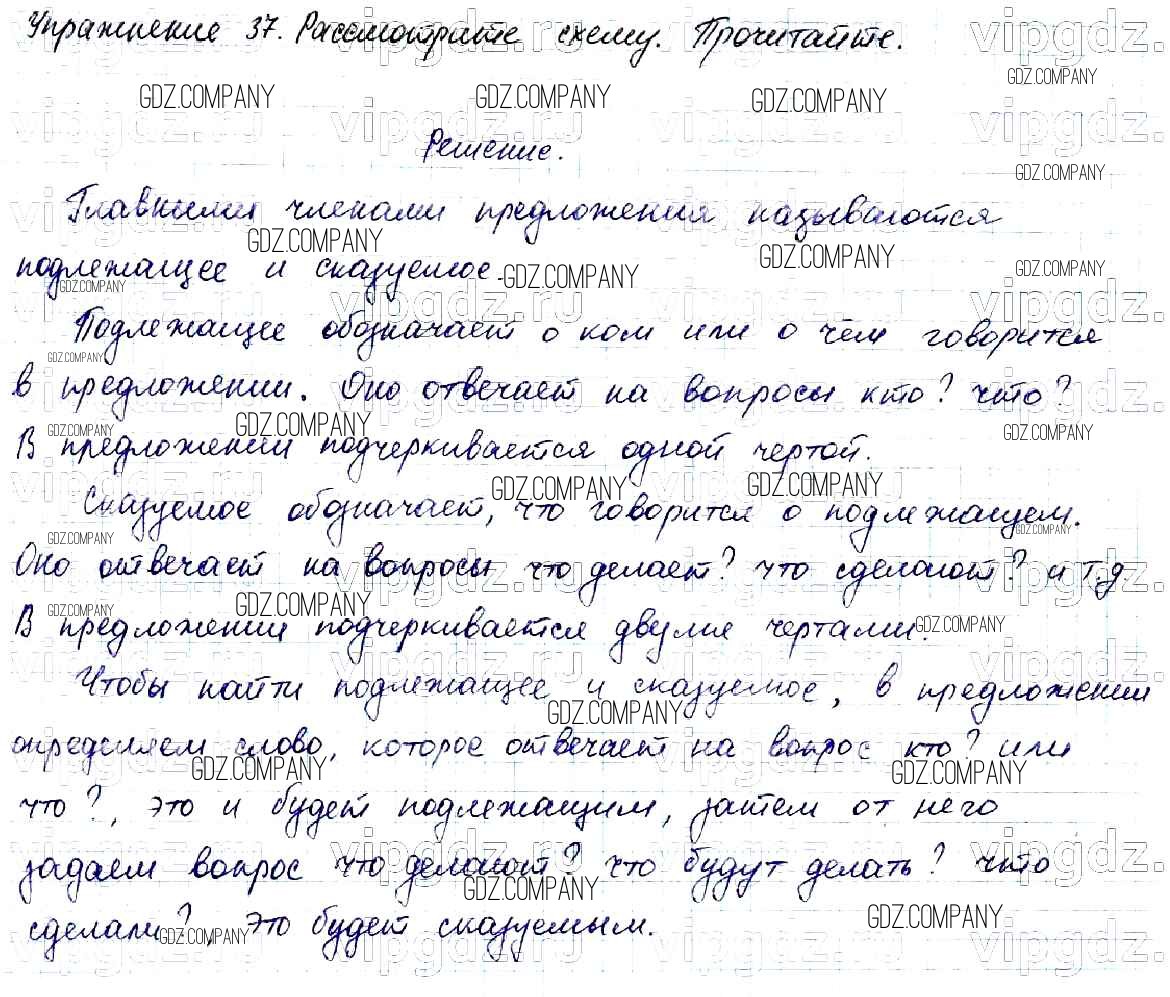 Упражнение 37. Рассмотрите схему. Прочитайте.
Решение.
Главными членами предложения называются
подлежащее и сказуемое.
Подлежащее обозначает о ком или о чём говорится
в предложении. Оно отвечает на вопросы кто? что?
В предложении подчеркивается одной чертой.
Сказуемое обозначает, что говорится о подлежащем.
Оно отвечает на вопросы что делает? что сделают? и т.д.
В предложении подчеркивается двумя чертами.
Чтобы найти подлежащее и сказуемое, в предложении
определяем слово, которое отвечает на вопрос кто? или
что?, это и будет подлежащим, затем от него
задаем вопрос что делают? что будут делать? что
сделали?, это будет сказуемым.
GDZ.COMPANY
vipgdz.ru